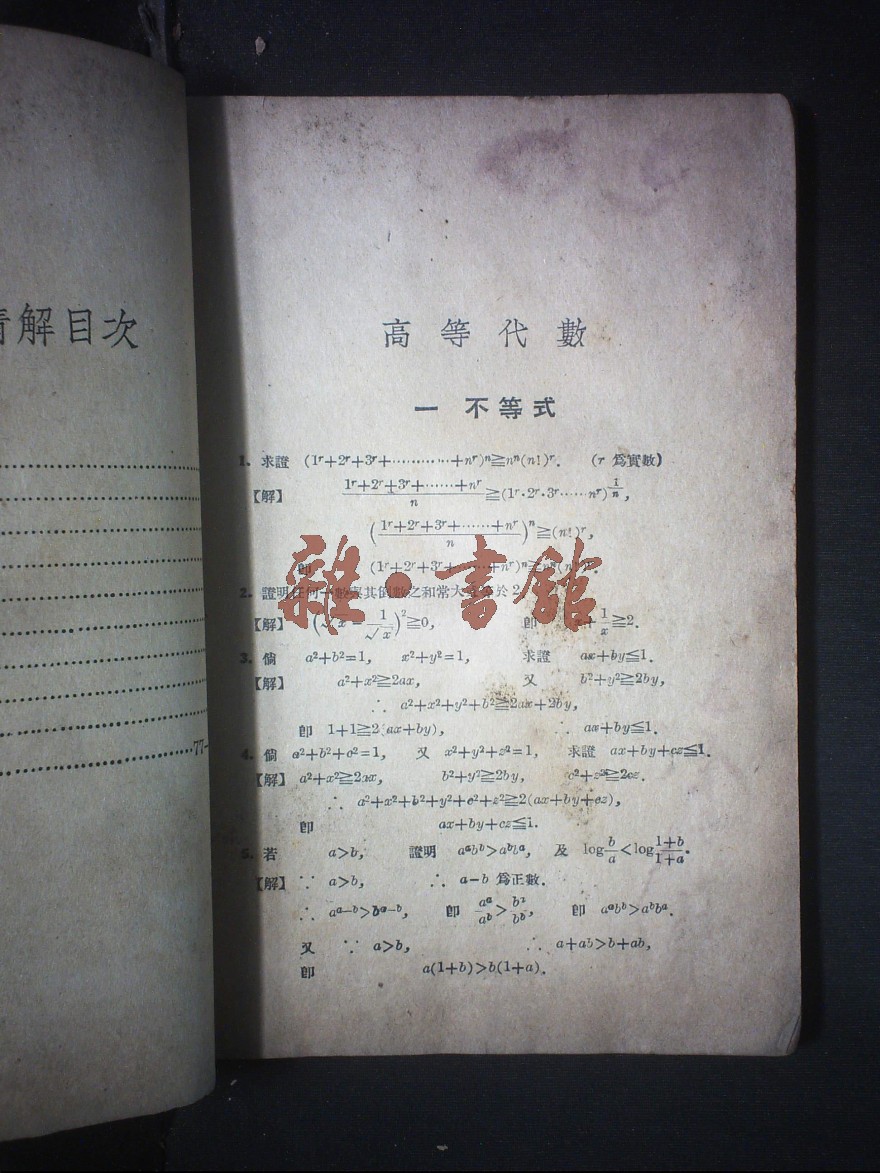 解目次
77-
高等代數
一 不等式
1. 求證 (1ʳ+2ʳ+3ʳ+…………+nʳ)ⁿ≧nⁿ(n!)ʳ. (r 爲實數)
【解】 (1ʳ+2ʳ+3ʳ+……+nʳ)/n ≧(1ʳ·2ʳ·3ʳ……nʳ)^(1/n),
((1ʳ+2ʳ+3ʳ+……+nʳ)/n)ⁿ≧(n!)ʳ,
卽 (1ʳ+2ʳ+3ʳ+……+nʳ)ⁿ≧nⁿ(n!)ʳ
2. 證明任何 數與其倒數之和常大 等於 2
【解】 (√x − 1/√x)²≧0, 卽 x+1/x≧2.
3. 倘 a²+b²=1, x²+y²=1, 求證 ax+by≦1.
【解】 a²+x²≧2ax, 又 b²+y²≧2by,
∴ a²+x²+y²+b²≧2ax+2by,
卽 1+1≧2(ax+by), ∴ ax+by≦1.
4. 倘 a²+b²+c²=1, 又 x²+y²+z²=1, 求證 ax+by+cz≦1.
【解】 a²+x²≧2ax, b²+y²≧2by, c²+z²≧2cz.
∴ a²+x²+b²+y²+c²+z²≧2(ax+by+cz),
卽 ax+by+cz≦1.
5. 若 a>b, 證明 aᵃbᵇ>aᵇbᵃ, 及 log b/a<log (1+b)/(1+a).
【解】 ∵ a>b, ∴ a−b 爲正數.
∴ aᵃ⁻ᵇ>bᵃ⁻ᵇ, 卽 aᵃ/aᵇ>bᵃ/bᵇ, 卽 aᵃbᵇ>aᵇbᵃ.
又 ∵ a>b, ∴ a+ab>b+ab,
卽 a(1+b)>b(1+a).
雜·書館